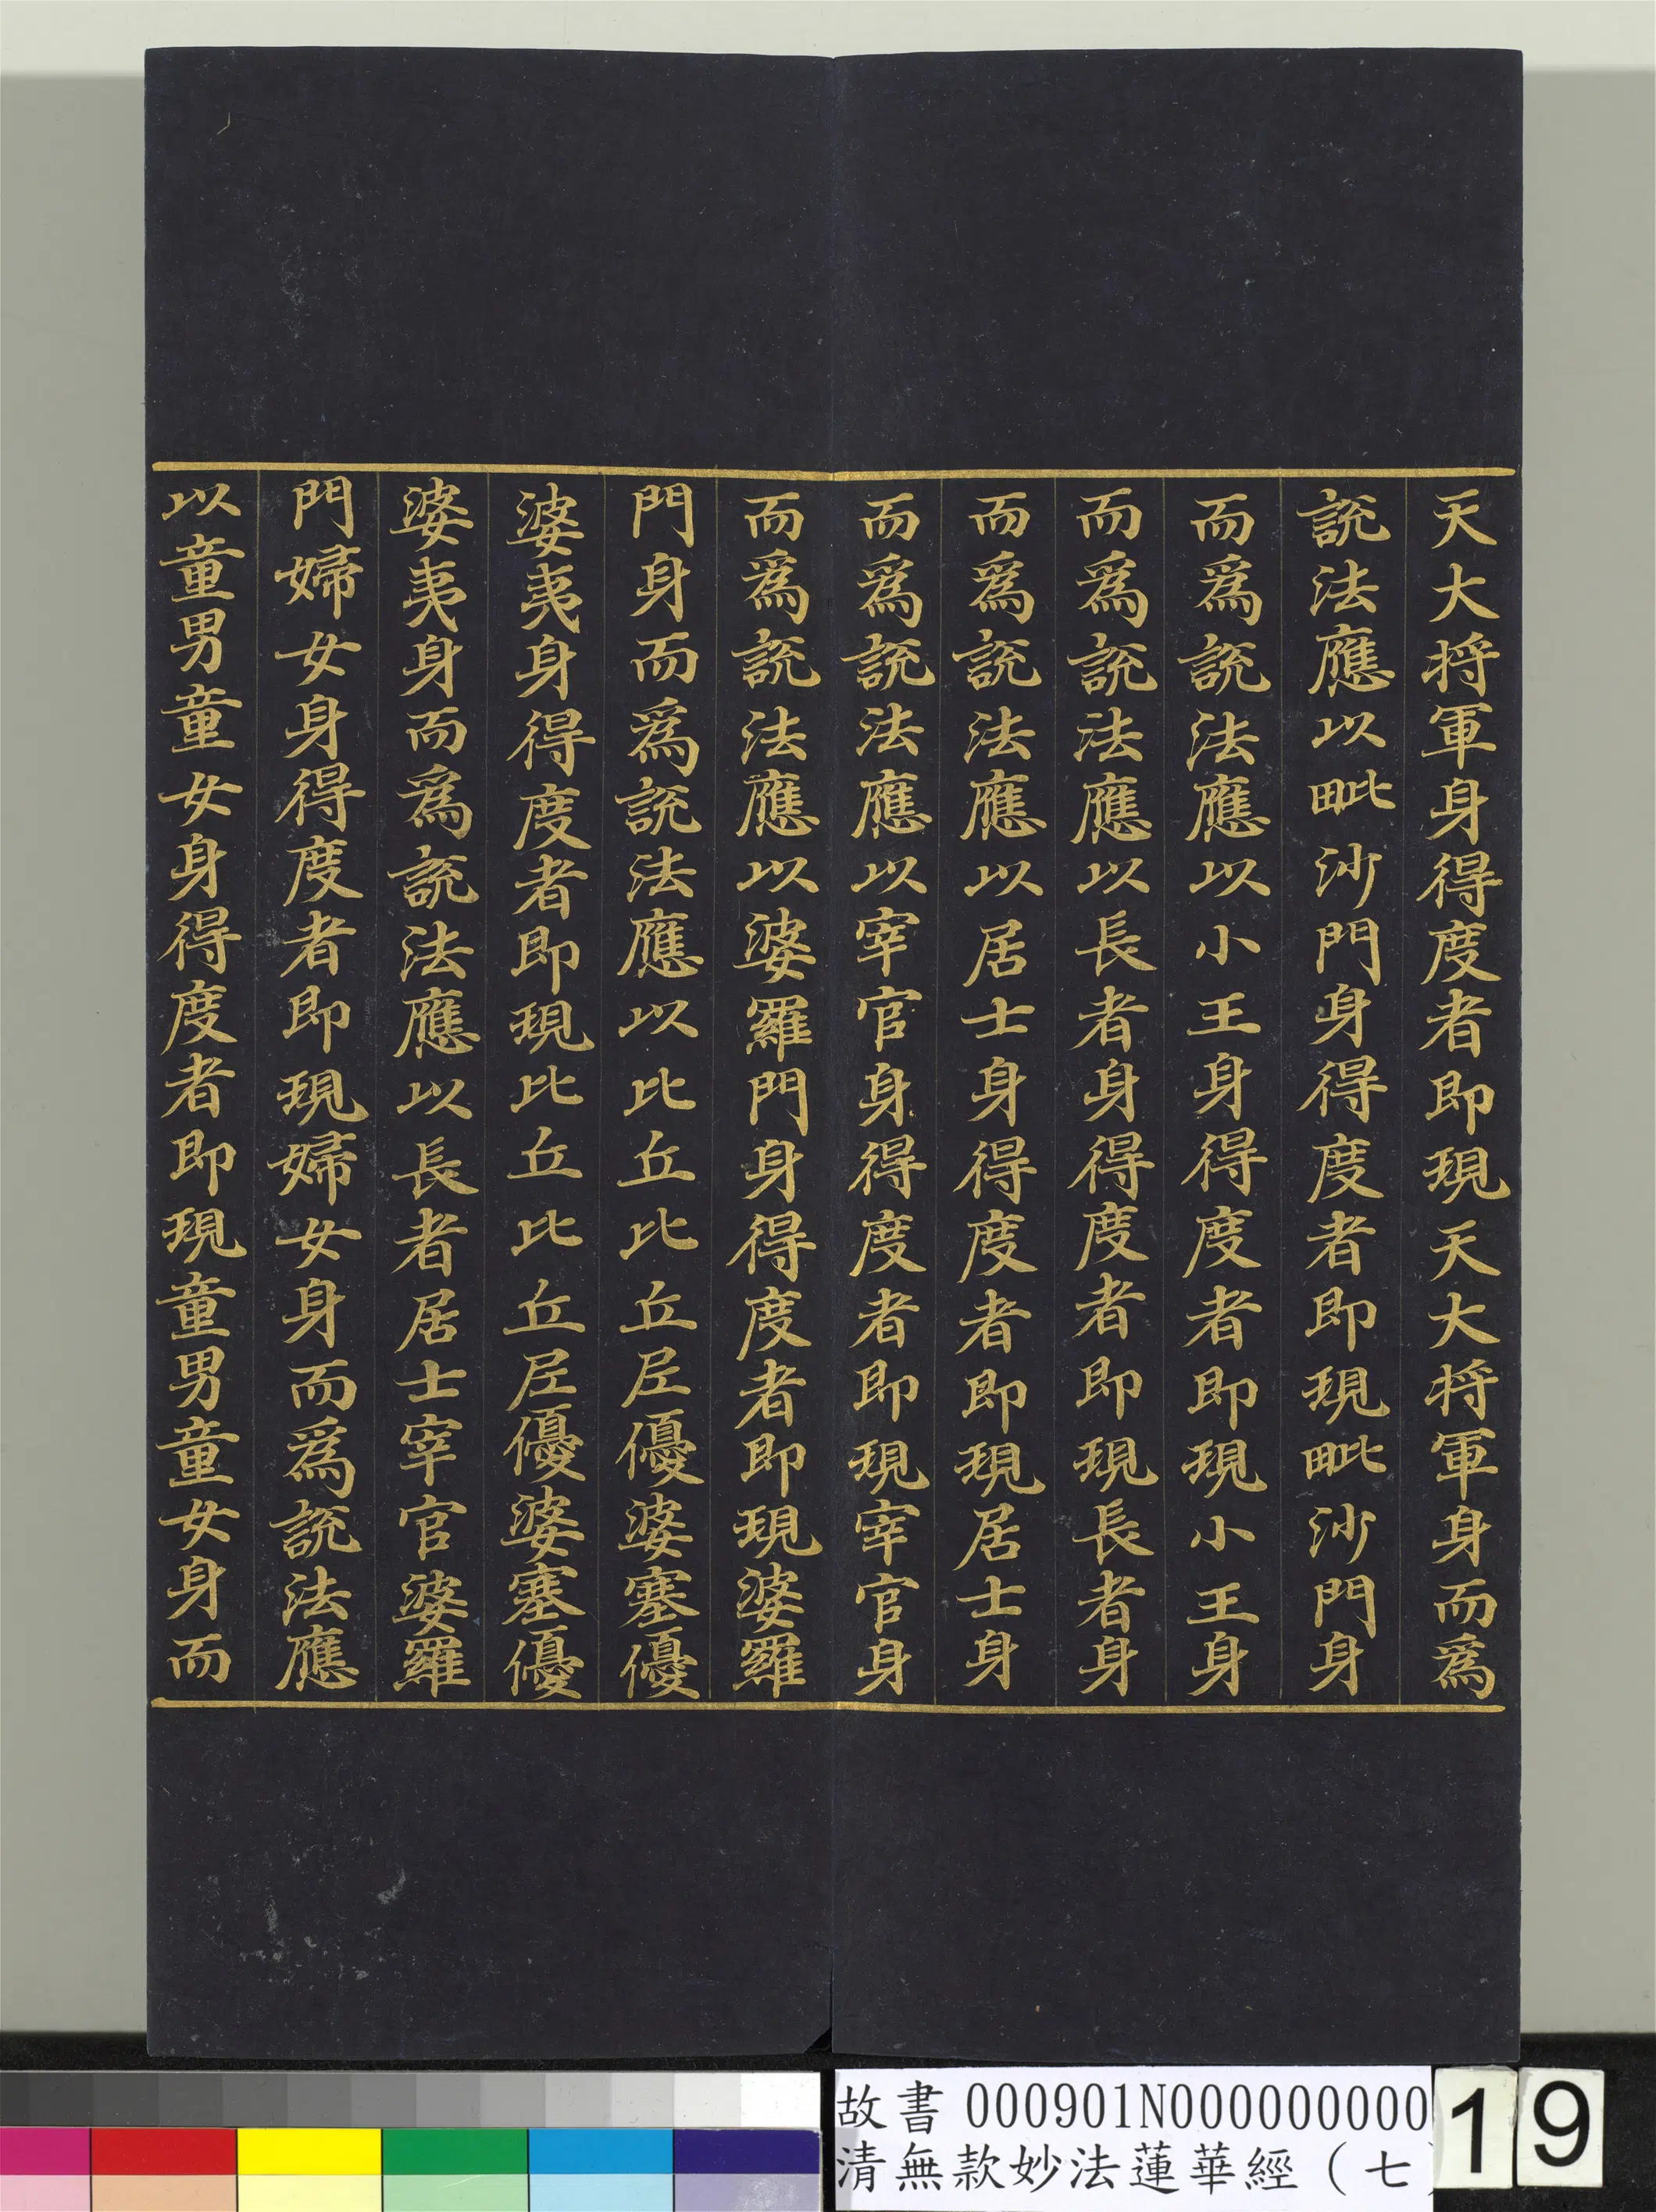 天大将軍身得度者即現天大将軍身而為
說法應以毗沙門身得度者即現毗沙門身
而為說法應以小王身得度者即現小王身
而為說法應以長者身得度者即現長者身
而為說法應以居士身得度者即現居士身
而為說法應以宰官身得度者即現宰官身
而為說法應以婆羅門身得度者即現婆羅
門身而為說法應以比丘比丘尼優婆塞優
婆夷身得度者即現比丘比丘尼優婆塞優
婆夷身而為說法應以長者居士宰官婆羅
門婦女身得度者即現婦女身而為說法應
以童男童女身得度者即現童男童女身而
故書 000901N000000000
清無款妙法蓮華經（七
19